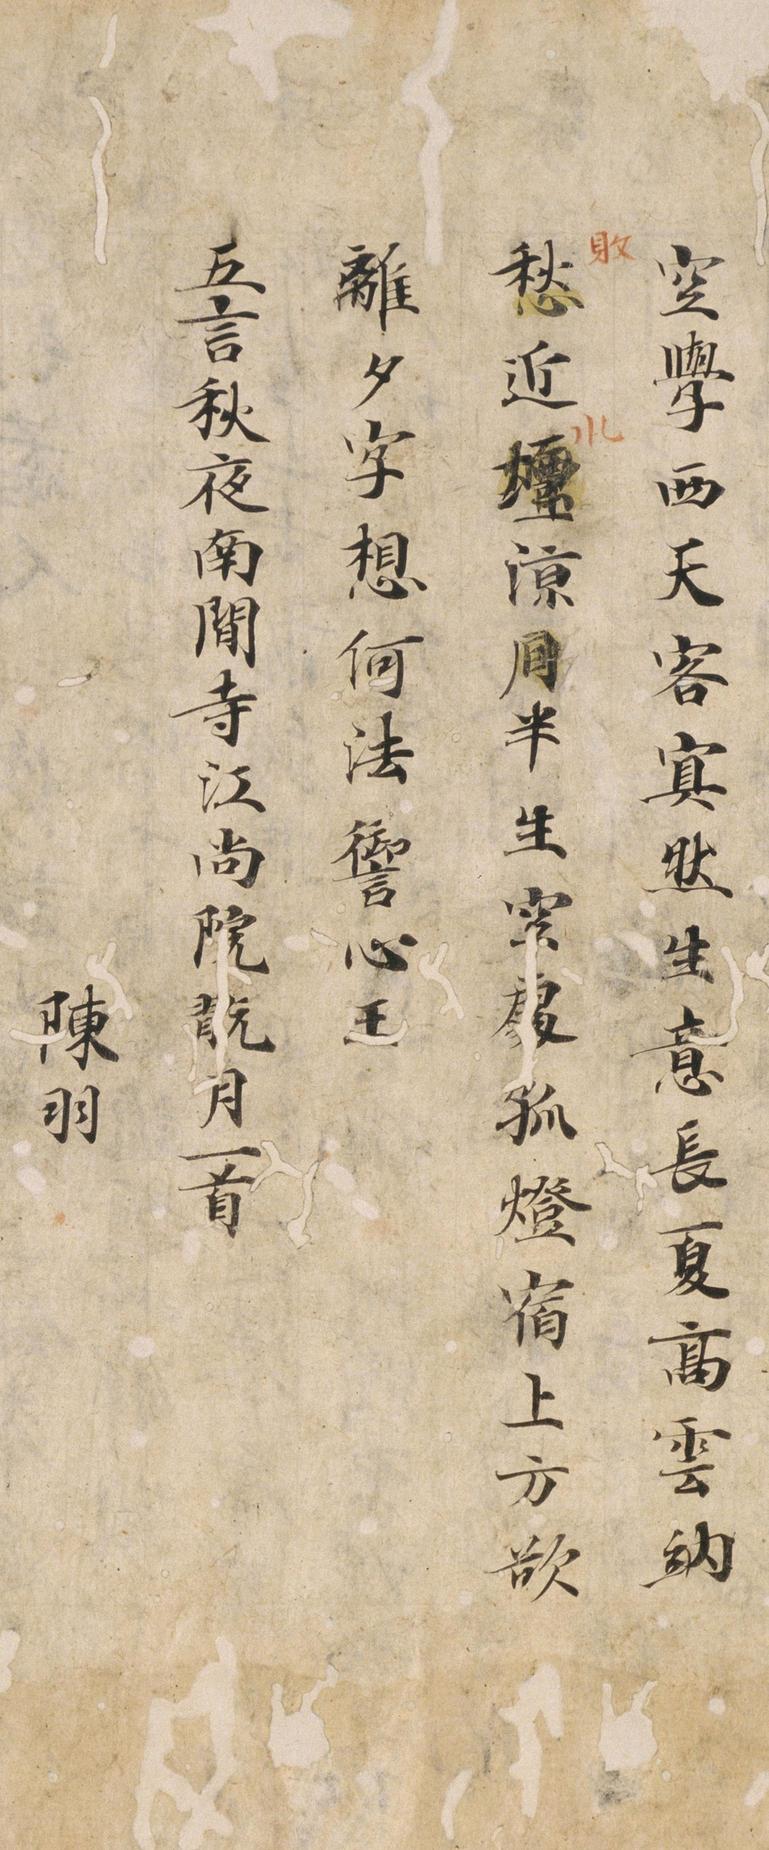 空學西天客寘然生意長夏高雲納
敗
愁近壇涼月半生空處孤燈宿上方欲
小
離夕字想何法響心王
五言秋夜南閒寺江尚院翫月一首
陳羽